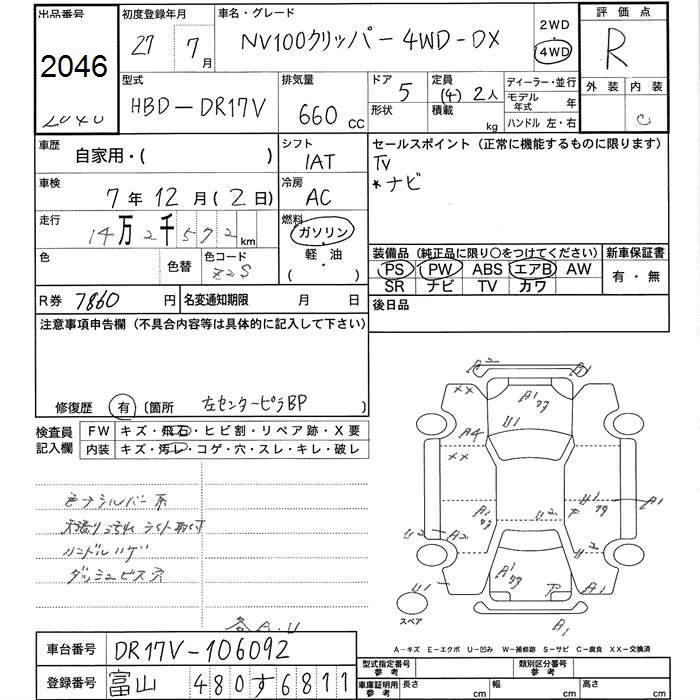 出品番号
2046
2040
初度登録年月
27 7月
車名・グレード
NV100クリッパー 4WD-DX
2WD
・
4WD
評価点
R
型式
HBD-DR17V
排気量
660 CC
ドア
5
形状
定員
(4) 2人
積載
kg
ディーラー・並行
モデル年式 年
ハンドル 左・右
外装 内装
C
車歴
自家用・( )
シフト
IAT
セールスポイント (正常に機能するものに限ります)
TV
*ナビ
車検
7年12月(2日)
冷房
AC
走行
14万2千572km
燃料
ガソリン
・
軽油
( )
色
色替
色コード
Z2S
装備品 (純正品に限り○をつけてください)
PS PW ABS エアB AW
SR ナビ TV カワ
新車保証書
有・無
R券 7860円
名変通知期限 月 日
後日品
注意事項申告欄 (不具合内容等は具体的に記入して下さい)
修復歴 有 〔箇所 左センターピラBP 〕
検査員記入欄
FW キズ・飛石・ヒビ割・リペア跡・X要
内装 キズ・汚レ・コゲ・穴・スレ・キレ・破レ
ハンドルハゲ
ダッシュビス穴
各A.U
A2
XX
A1
U1
A4
XX
U2
A2
A1
U1
スペア
A-キズ E-エクボ U-凹み W-補修跡 S-サビ C-腐食 XX-交換済
車台番号 DR17V-106092
登録番号 富山 480す6811
型式指定番号 参考
類別区分番号 参考
車庫証明用 参考
長さ cm
幅 cm
高さ cm